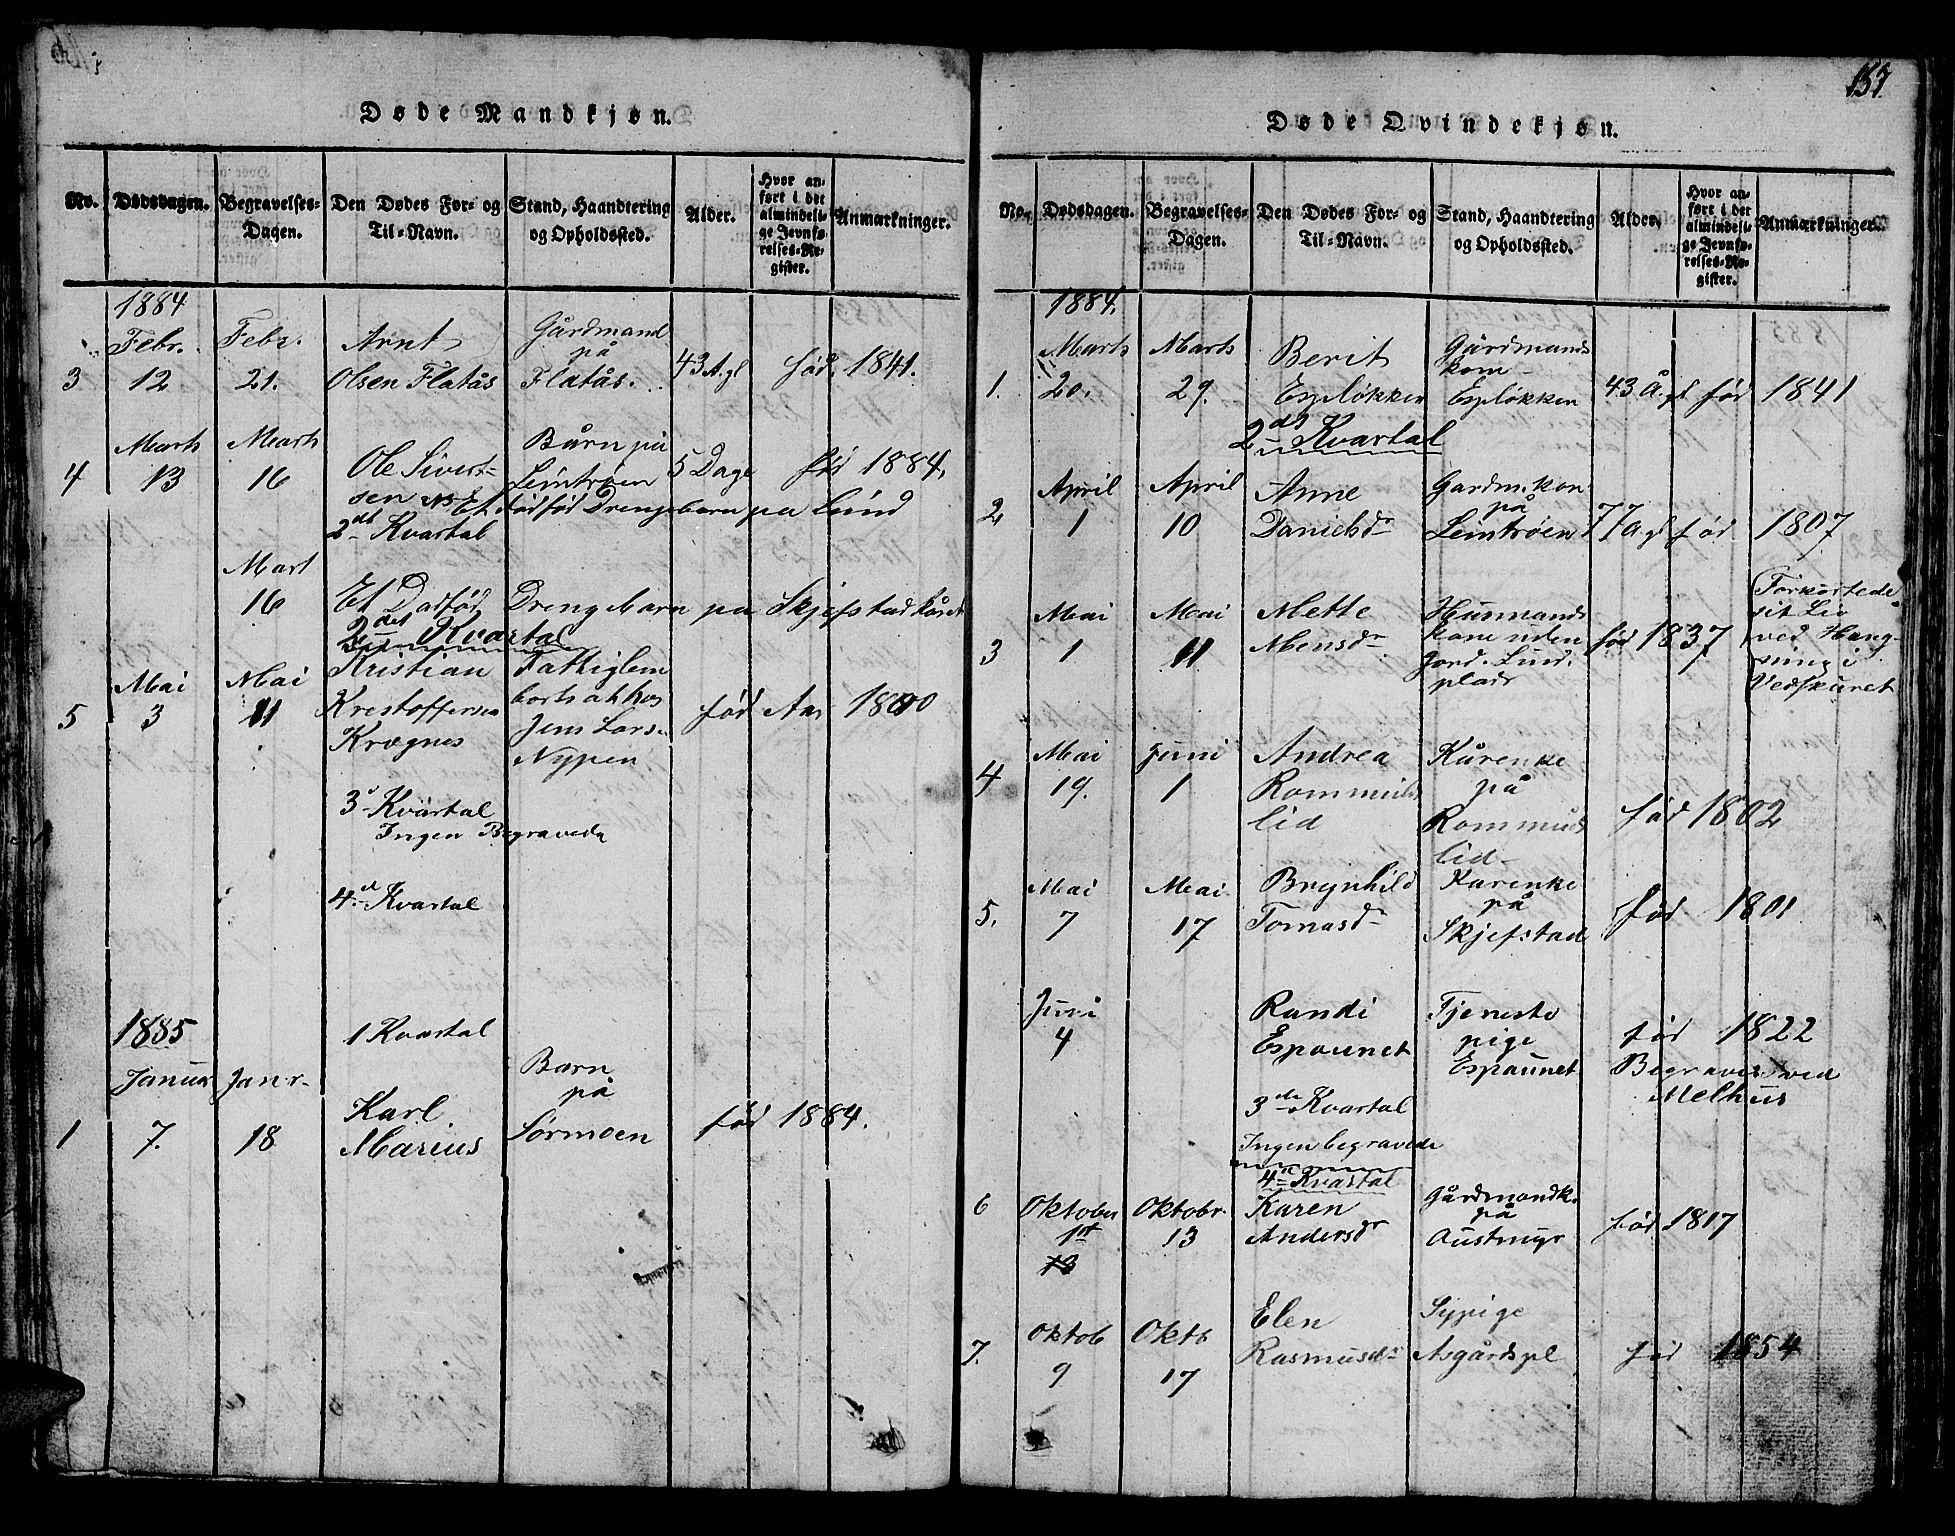 157.
Døde Mandkjøn.
No. Dødsdagen. Begravelses-Dagen. Den Dødes For- og Til-Navn. Stand, Haandtering og Opholdssted. Alder. Hvor anført i det almindelige Jevnførelses-Register. Anmærkninger.
1884
3 Febr. 12 Febr. 21. Arnt Olsen Flatås Gårdmand på Flatås. 43 A. gl født 1841.
4 Marts 13 Marts 16 Ole Sivertsen Barn på Leintrøen 5 Dage fød 1884,
NB Et dødfød Drengebarn pa Lund
2det Kvartal
Mart 16 Et Dødfød Drengbarn pa Skjefstad
2det Kvartal
5 Mai 3 Mai 11 Kristian Krestoffersen Krægnes Fattiglem bortsat hos Jens Lars. Nypen fød Aar 1800
3d Kvartal
Ingen Begravede
4d Kvartal
1885
1 Kvartal
1 Januar 7. Janr. 18 Karl Marius Barn på Sørmoen fød 1884.
Døde Qvindekjøn.
No. Dødsdagen. Begravelses-Dagen. Den Dødes For- og Til-Navn. Stand, Haandtering og Opholdssted. Alder. Hvor anført i det almindelige Jevnførelses-Register. Anmærkninger.
1884.
1. Marts 20. Marts 29. Berit Espløkken Gårdmands kom Espløkken 43 Å. gl fød 1841
2det Kvartal
2 April 1 April 10 Anne Danielsdr Gardm. kon på Leintrøen 77 a. gl fød 1807
3 Mai 1 Mai 11 Mette Monsdr Husmands kone uden Jord. Lunds plads fød 1837 Forkortede sit Liv ved Hængning i Vedskuret
4 Mai 19. Juni 1 Andrea Rommuldslid Kårenke på Rommulds lid fød 1802
5. Mai 7 Mai 17 Brynhild Tomasdr Karenke på Skjefstad fød 1801
Juni 4 Randi Espaunet Tjeneste pige Espaunet fød 1822 Begraves ved Melhus
3de Kvartal
Ingen begravede
4d Kvartal
6 Oktober 1st 13 Oktobr. 13 Karen Andersdr Gårdmandk. på Austmyr fød 1817
7. Oktob 9 Oktb 17 Elen Rasmusdr Sypige Asgårds pl fød 1854